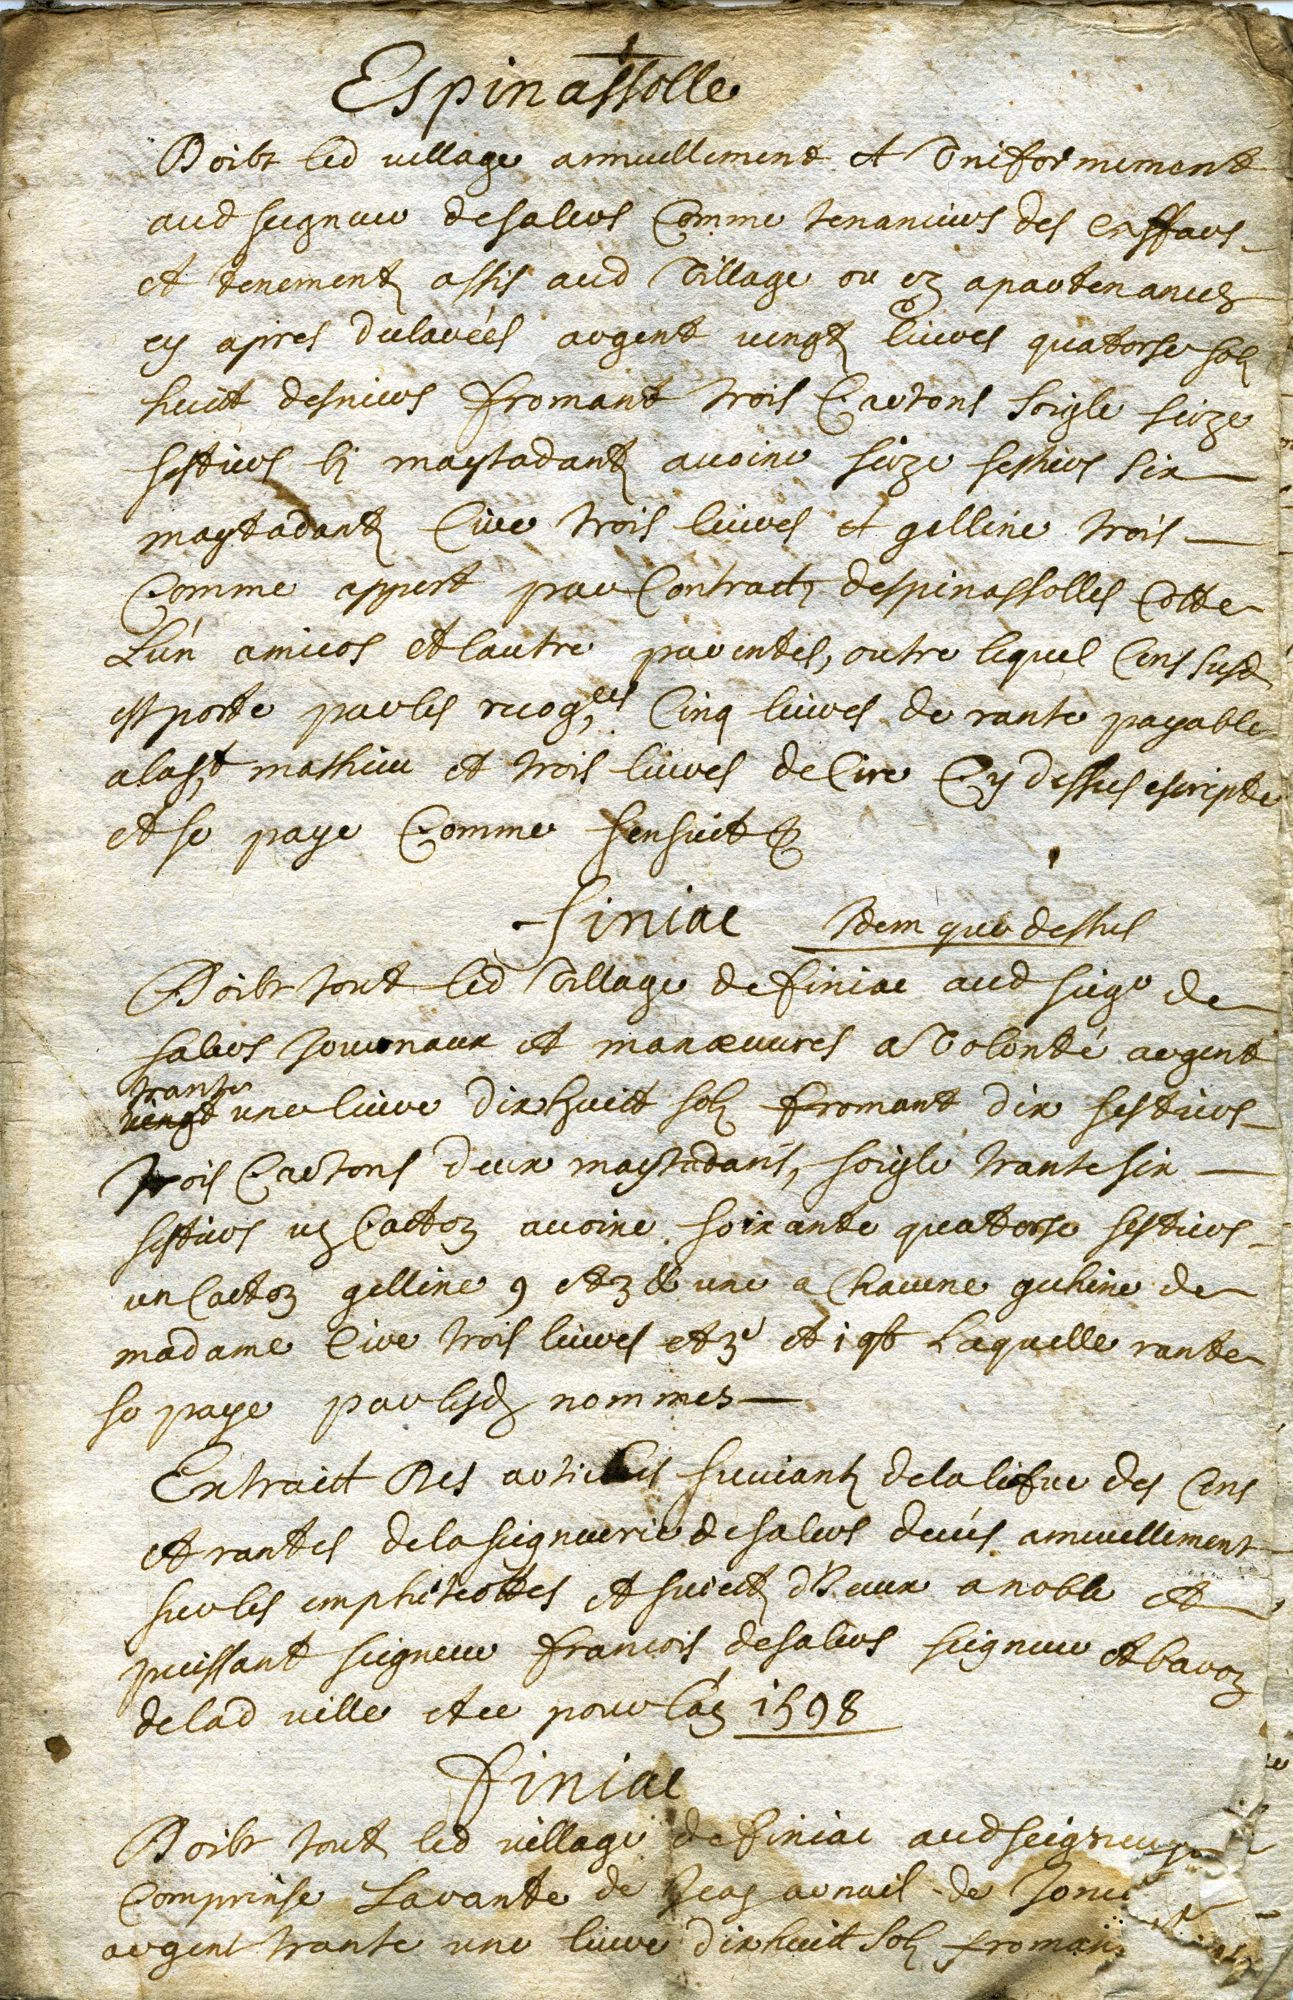 Espinassolle
Doibt led village annuellement et Uniformemant
aud seigneur de salers Comme tenanciers des
et tenement assis aud Village ou ez apartenances
cy apres declarées argent vingt livres quatorse solz
huict desniers fromant trois Cartons seigle seize
sestiers maytadantz avoine seize sestiers six
maytadantz Cire trois livres et gelline trois
Comme appert par Contractz despinassolles Cotte
Lún amicos et lautre parentes, outre lequel Cens susd
est porte par les recog,ces Cinq livres de rante payable
a la st mathieu et trois livres de Cire Cy dessus escripte
et se paye Comme sensuit
finiac Idem que dessus
Doibt tout led Village de finiac aud seigr de
salers Journaux et manœuvres a Volonté argent
trante
vingt une livre dix huict solz fromant dix sestiers
trois Cartons deux maytadans, seigle trante six
sestiers un Carton avoine soixante quatorse sestiers
un Carton gelline 9 et une a Chacune gehine de
madame Cire trois livres et Laquelle rante
se paye par lesd nommes
Extraict Des articles suivantz de la liefve des Cens
et rantes de la seigneurie de salers deues annuellement
sur les emphiteottes et subiectz d'Iceux a noble et
puissant seigneur francois de salers seigneur et baron
de lad ville etce pour lan 1598
finiac
Doibt tout led village de finiac aud seigneur
Comprinse La rante de de
argent trante une livre dix huict solz froman